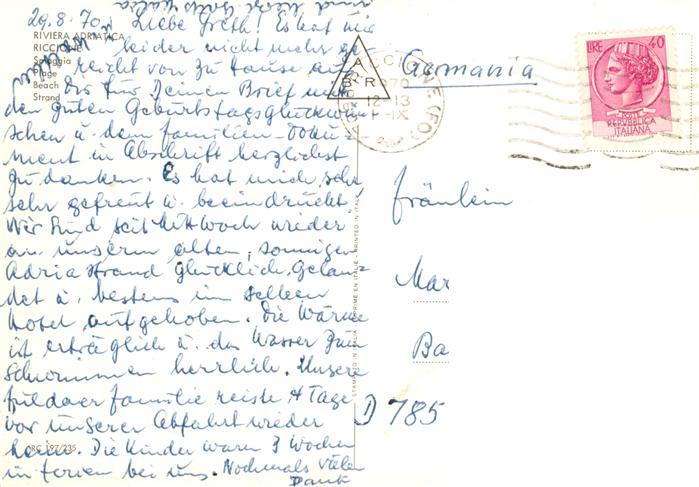 29.8.70. Liebe Greth! Es hat mir
leider nicht mehr ge
reicht von zu Hause aus
Dir für Deinen Brief mit
den guten Geburtstagsglückwün
schen u. dem Familien-Doku
ment in Abschrift herzlichst
zu danken. Es hat mich sehr
sehr gefreut u. beeindruckt.
Wir sind seit Mittwoch wieder
an unserm alten, sonnigen
Adria Strand glücklich gelan-
det u. bestens im selben
Hotel aufgehoben. Die Wärme
ist erträglich u. das Wasser zum
Schwimmen herrlich. Unsere
Fuldaer Familie reiste 14 Tage
vor unserer Abfahrt wieder
heim. Die Kinder waren 3 Wochen
in Ferien bei uns. Nochmals vielen
Dank
RIVIERA ADRIATICA
RICCIONE
Spiaggia
Plage
Beach
Strand
RC 197/235
PRINTED IN ITALY
Germania
LIRE 40
POSTE
REPUBBLICA
ITALIANA
Fräulein
Mar
Ba
D 785